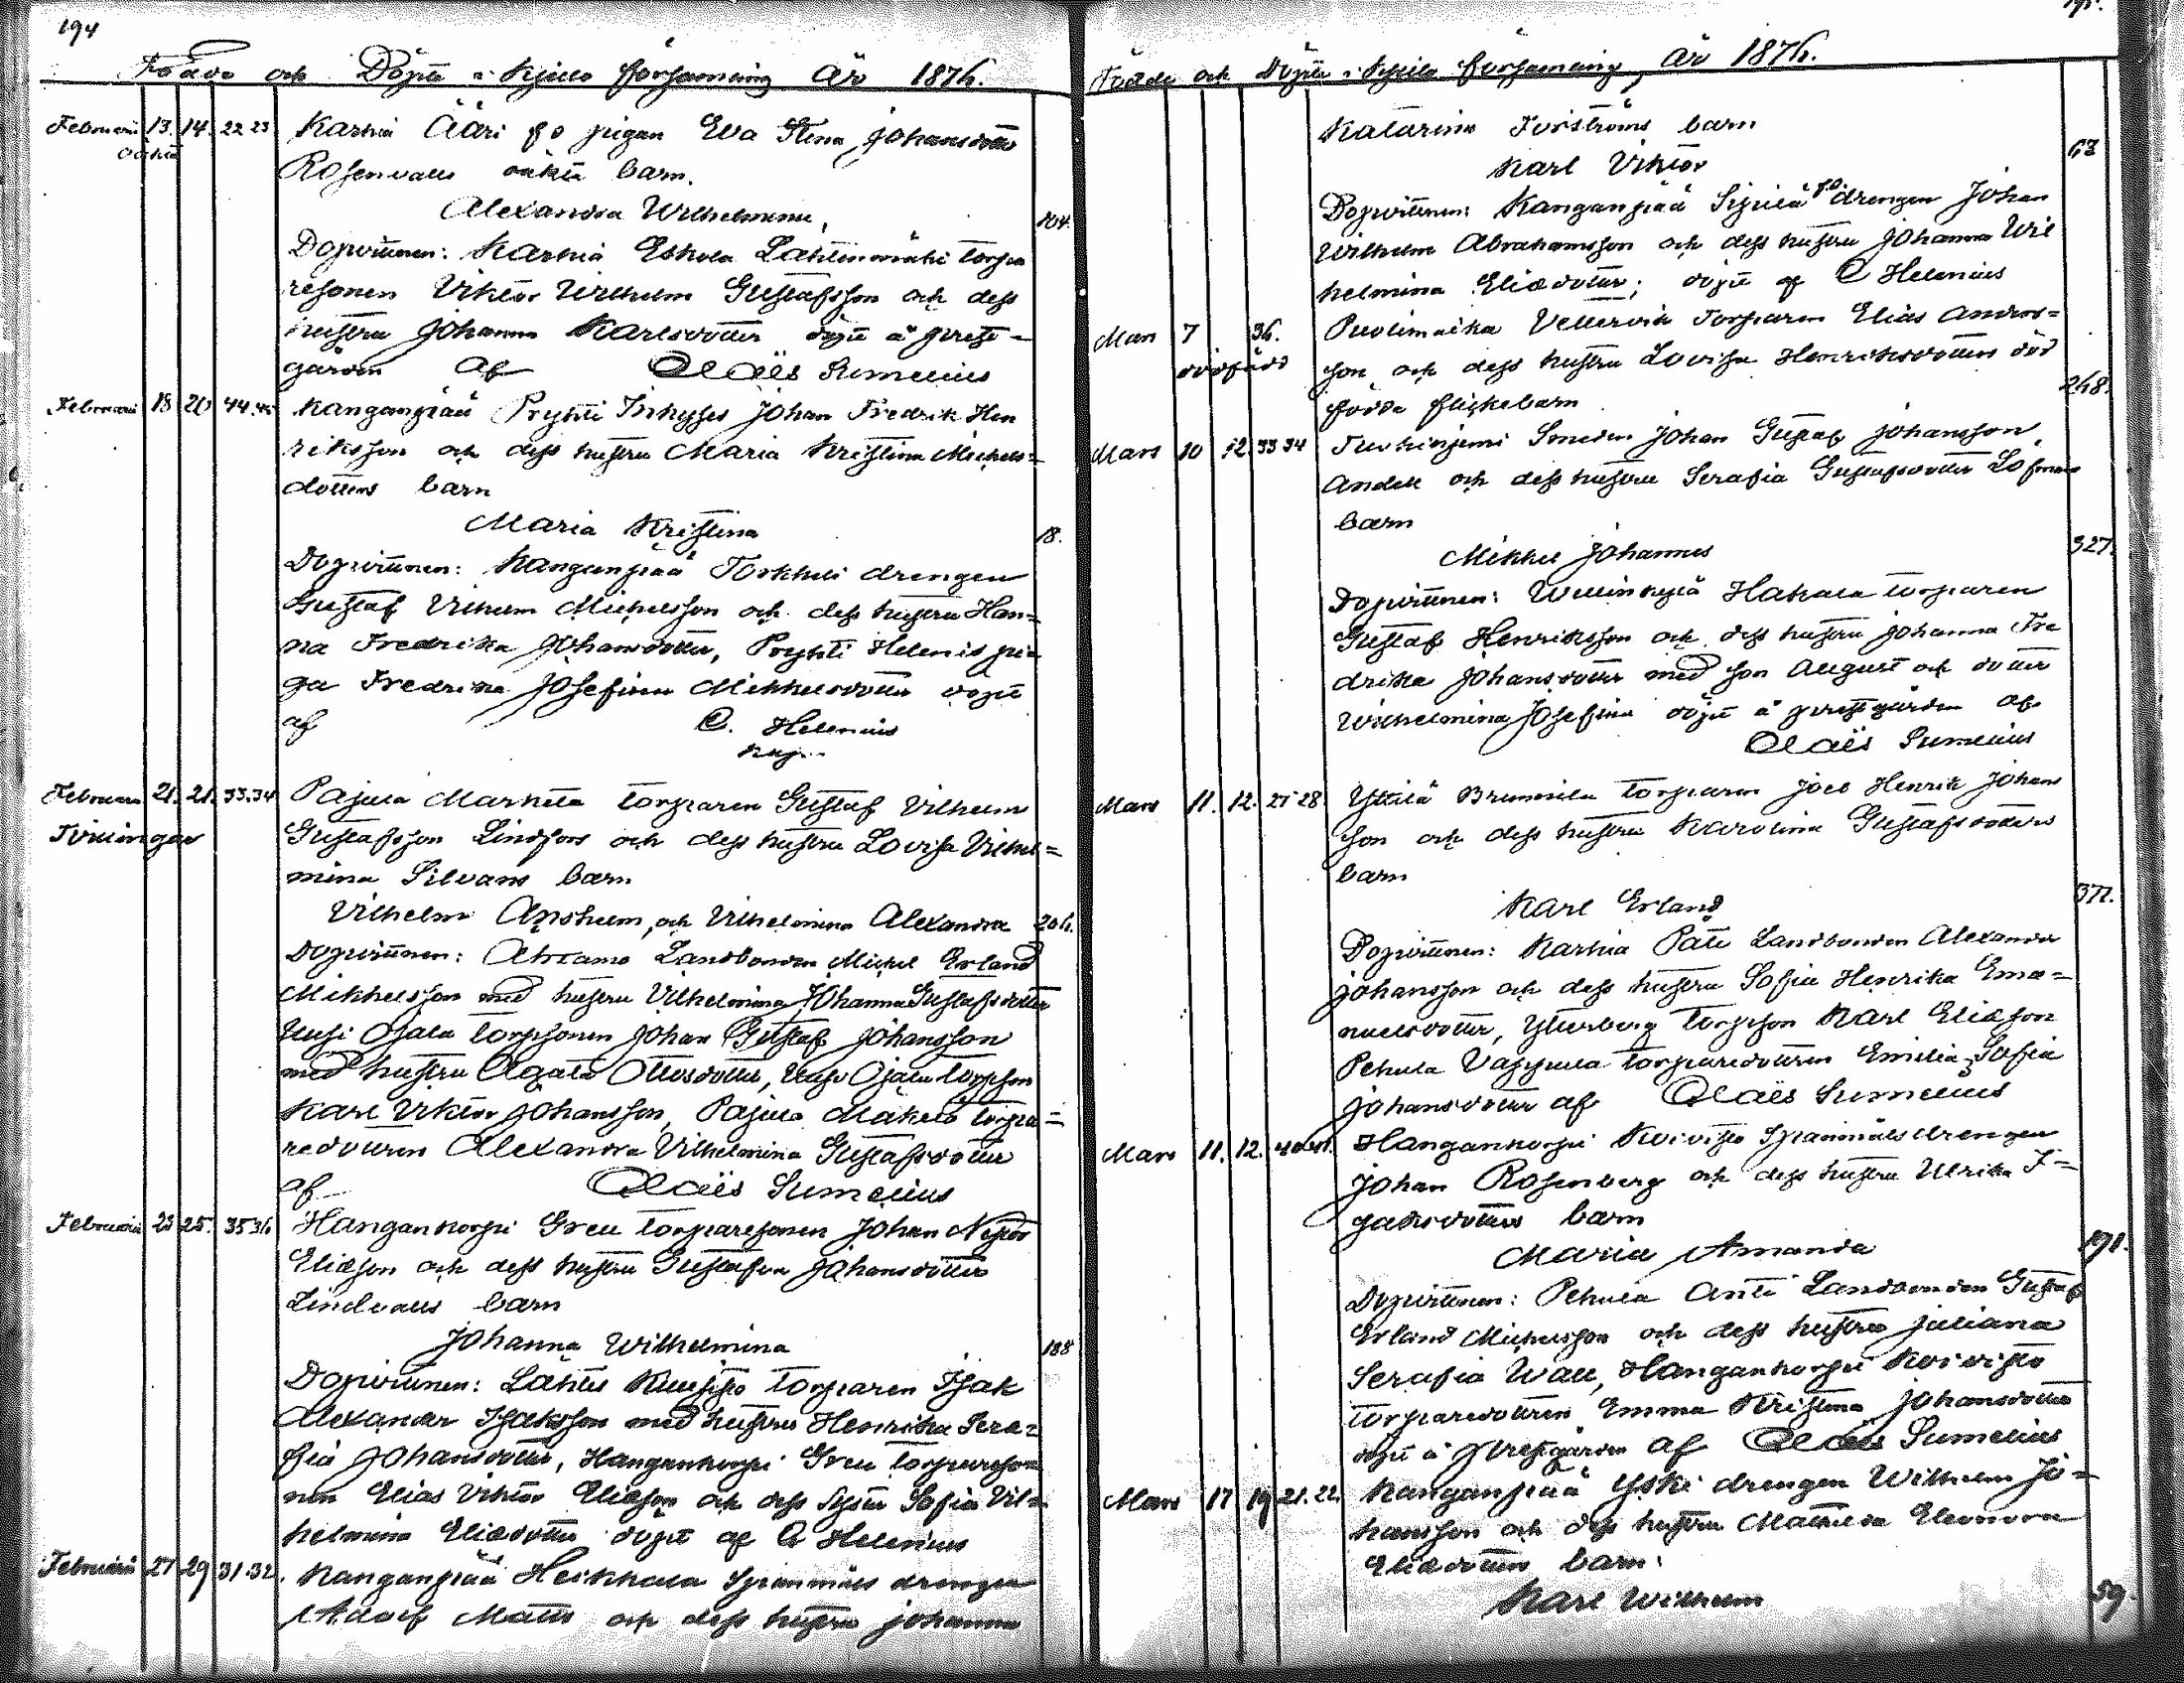 194
Födde och Döpte i Kjulo församling År 1876.
Februari 13. 14. 22 23 Karhia Ääri f d pigan Eva Stina Johansdotter
oäkta Rosenvalls oäkta barn.
Alexandra Wilhelmina, 104.
Dopvittnen: Karhia Eskola Lahtinmäki torpa
resonen Viktor Wilhelm Gustafsson och dess
hustru Johanna Karlsdotter döpt å prest-
gården af Claës Sumelius
Februari 18 20 44.45 Kanganpää Prytti Johan Fredrik Hen
riksson och dess hustru Maria Kristina Michels-
dotters barn
Maria Kristina 18.
Dopvittnen: Kanganpää Torkkeli drengen
Gustaf Vilhelm Michelsson och dess hustru Han-
na Fredrika Johansdotter, Prytti Helenis pi-
ga Fredrika Josefina Mikkelsdotter döpt
af C. Helenius
kap.
Februari 21. 21. 33.34 Pajula Markula torparen Gustaf Vilhelm
Tvillingar Gustafsson Lindfors och dess hustru Lovisa Vilhel-
mina Silvans barn
Vilhelm Anshelm, och Vilhelmina Alexandra 206.
Dopvittnen: Ahramo Landbonden Michel Erland
Mikkelsson med hustru Vilhelmina Johanna Gustafsdotter
Uusi Ojala torpsonen Johan Gustaf Johansson
med hustru Agata Ottosdotter, Uusi Ojala torpson
Karl Viktor Johansson, Pajula Mäkelä torpa-
redottren Alexandra Vilhelmina Gustafsdotter
af Claës Sumelius
Februari 23 25. 35 36 Hangankorpi Greu torparesonen Johan Nestor
Eliasson och dess hustru Gustafva Johansdotter
Lindvalls barn
Johanna Wilhelmina 188
Dopvittnen: Lähtis Kuusisto torparen Isak
Alexander Isaksson med hustru Henrika Sera-
fia Johansdotter, Hangankorpi Greu torpareso-
nen Elias Viktor Eliasson och dess syster Sofia Vil-
helmina Eliædotter döpt af C Helenius
Februari 27 29 31.32. Kanganpää Heikkala Spannmåls drengen
Adolf Matts och dess hustru Johanna
195.
Födde och Döpte i Kjulo församling, År 1876.
Katarina Forströms barn
Karl Viktor 63
Dopvittnen: Kanganpää Sipilä f.d drengen Johan
Wilhelm Abrahamsson och dess hustru Johanna Wil
helmina Eliædotter; döpt af C Helenius
Mars 7 36. Puolimatka Vellervik Torparen Elias Anders-
dödfödd son och dess hustru Lovisa Henriksdotters död
födda flickebarn 268.
Mars 10 12. 33 34 Tuohiniemi Smeden Johan Gustaf Johansson
Andell och dess hustru Serafia Gustafsdotter Lofman
barn
Mikkel Johannes 327.
Dopvittnen: Wuolinkylä Hakala torparen
Gustaf Henriksson och dess hustru Johanna Fre
drika Johansdotter med son August och dotter
Wilhelmina Josefina döpt å prestgården af
Claës Sumelius
Mars 11. 12. 27 28. Yttilä Brunnila torparen Joel Henrik Johans
son och dess hustru Karolina Gustafsdotters
barn
Karl Erland 377.
Dopvittnen: Karhia Patu Landbonden Alexander
Johansson och dess hustru Sofia Henrika Ema-
nuelsdotter, Ytterberg torpson Karl Eliæson
Pehula Vappula torparedottren Emilia Sofia
Johansdotter af Claës Sumelius
Mars 11. 12. 40 41. Hangankorpi Koivisto Spannmåls drengen
Johan Rosenberg och dess hustru Ulrika I-
saksdotters barn
Maria Amanda 191.
Dopvittnen: Pehula Antti Landbonden Gustaf
Erland Michelsson och dess hustru Juliana
Serafia Wall, Hangankorpi Koivisto
torparedottren Emma Kristina Johansdotter
döpt å prestgården af Claës Sumelius
Mars 17 19 21.22. Kanganpää Yski drengen Wilhelm Jo-
hansson och dess hustru Mathilda Eleonora
Eliædotters barn:
Karl Wilhelm 59.